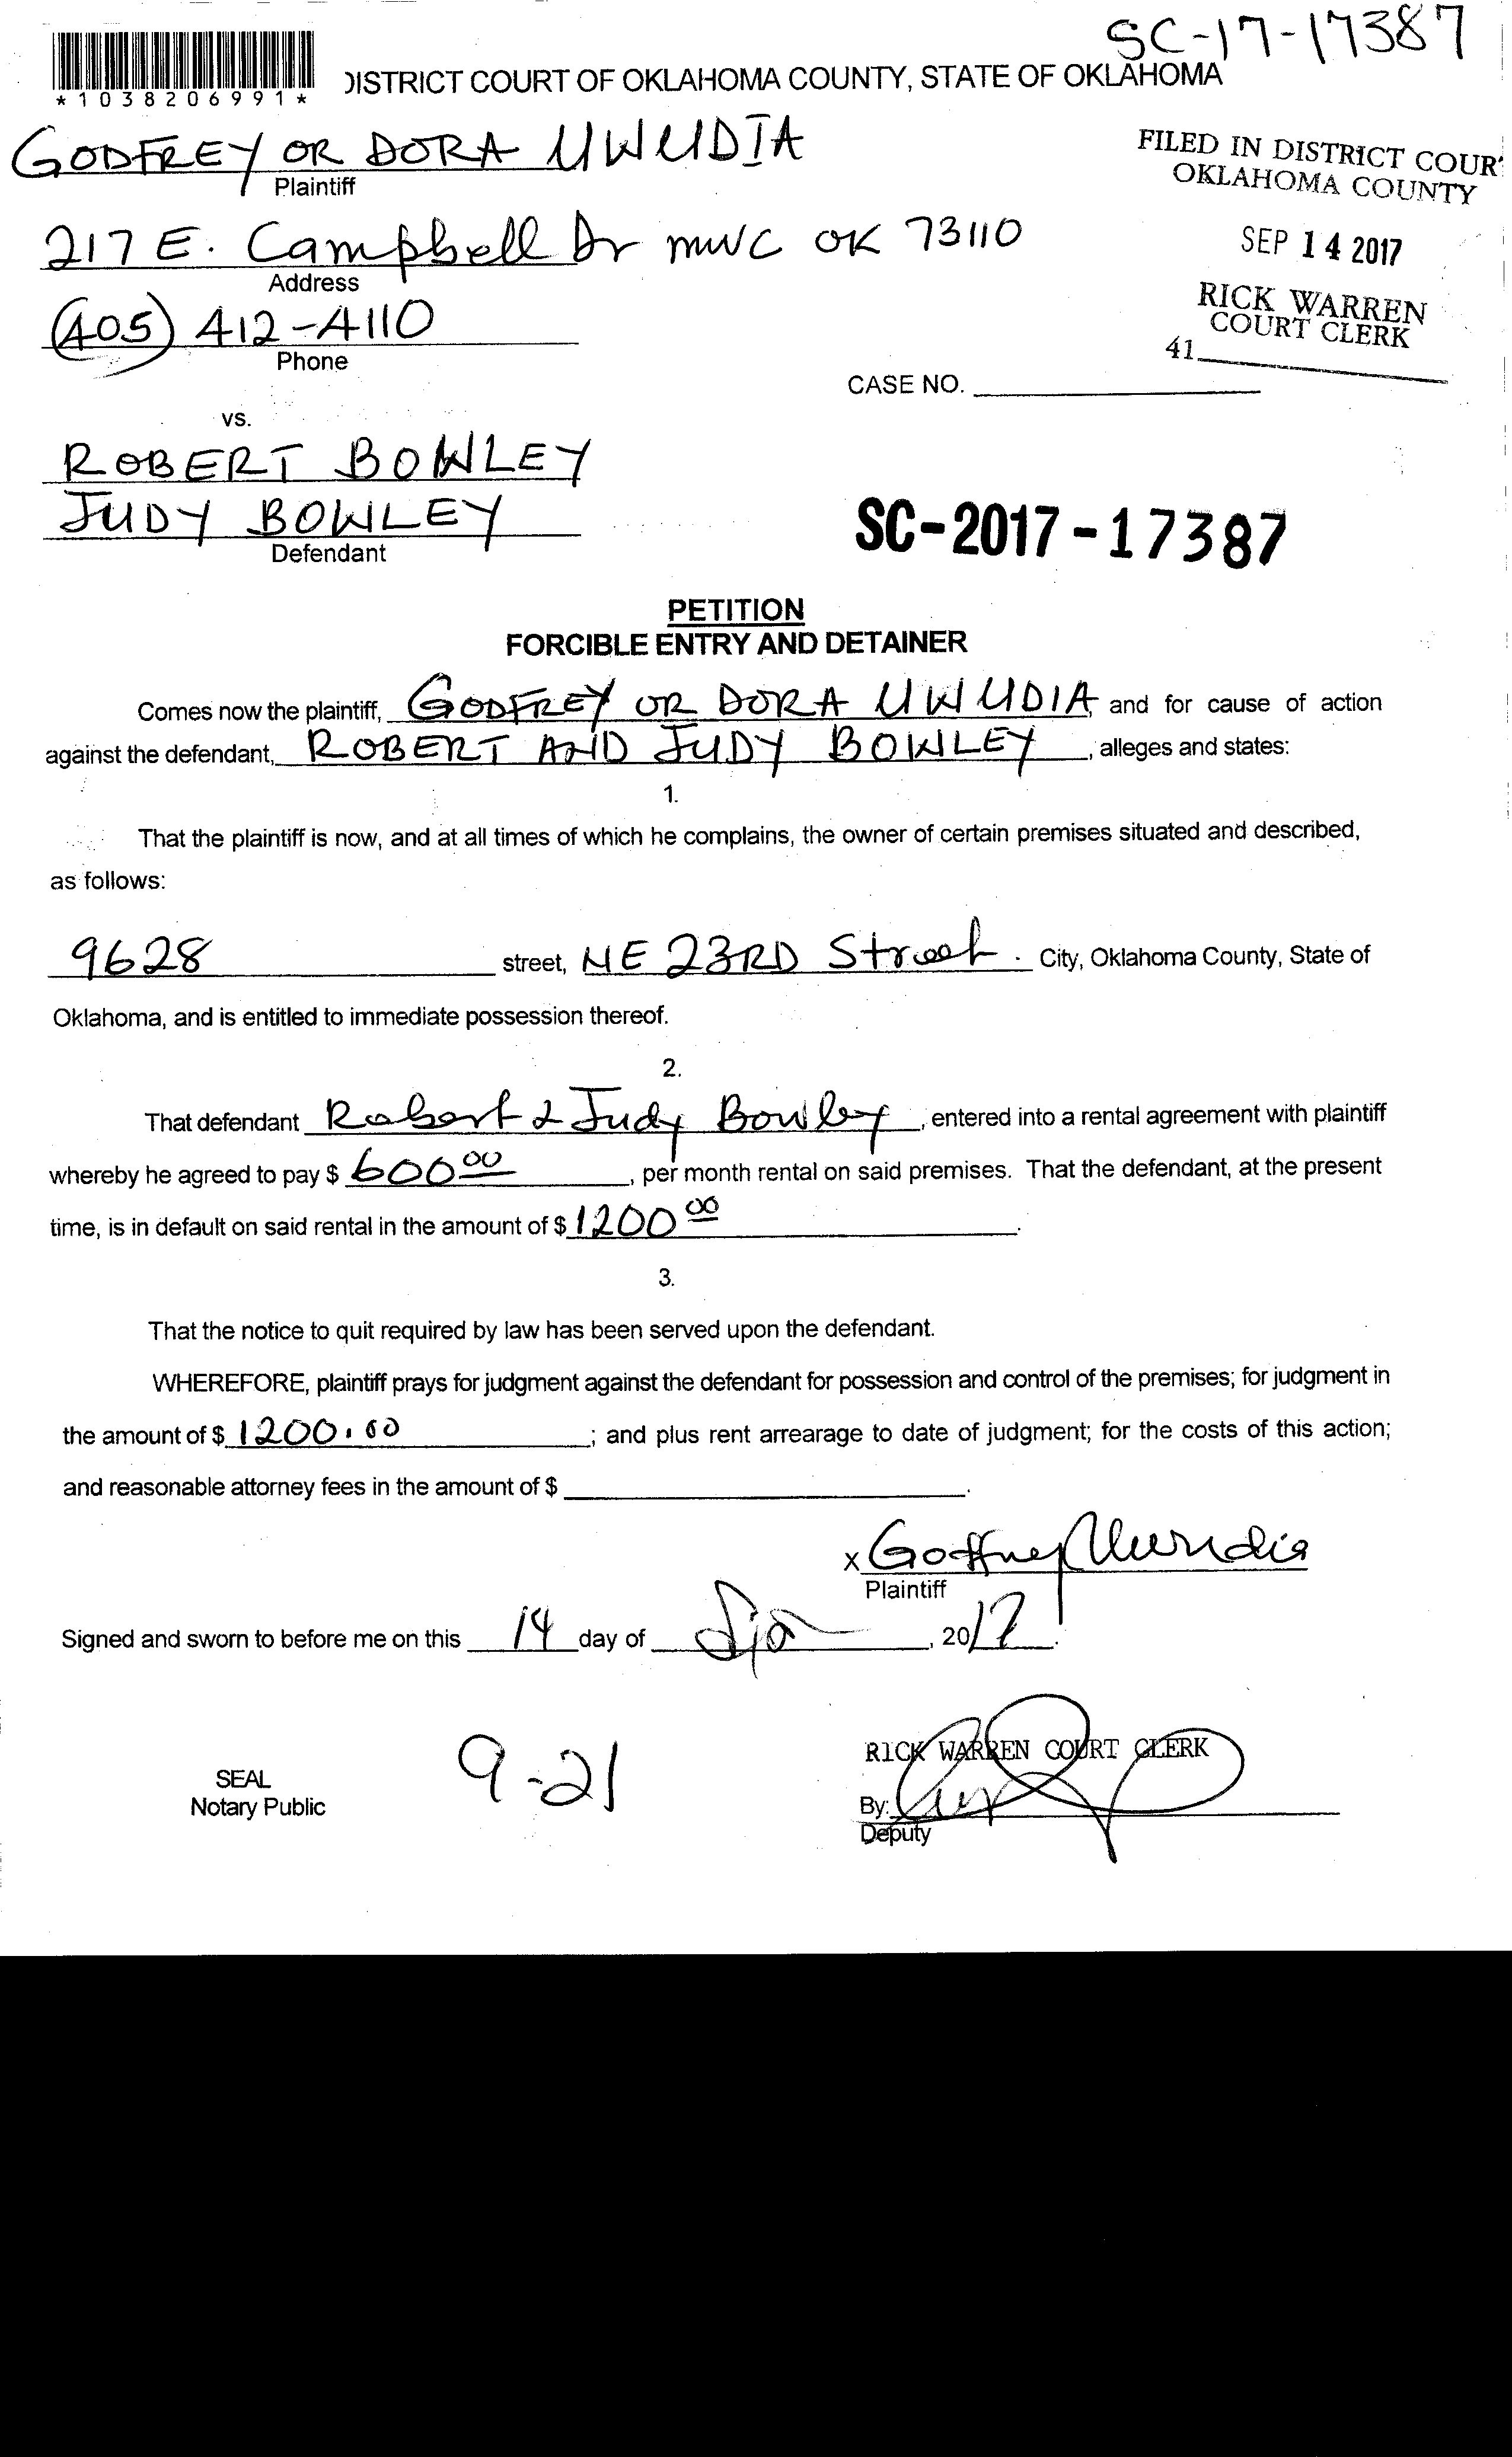 SC-17-17387
*1038206991*
DISTRICT COURT OF OKLAHOMA COUNTY, STATE OF OKLAHOMA
GODFREY OR DORA UWUDIA
Plaintiff
FILED IN DISTRICT COUR
OKLAHOMA COUNTY
217 E. Campbell Dr MWC OK 73110
Address
SEP 14 2017
(405) 412-4110
Phone
RICK WARREN
COURT CLERK
41
CASE NO.
vs.
ROBERT BOWLEY
JUDY BOWLEY
Defendant
SC-2017-17387
PETITION
FORCIBLE ENTRY AND DETAINER
Comes now the plaintiff, GODFREY OR DORA UWUDIA and for cause of action
against the defendant, ROBERT AND JUDY BOWLEY, alleges and states:
1.
That the plaintiff is now, and at all times of which he complains, the owner of certain premises situated and described,
as follows:
9628 street, NE 23RD Street. City, Oklahoma County, State of
Oklahoma, and is entitled to immediate possession thereof.
2.
That defendant Robert & Judy Bowley, entered into a rental agreement with plaintiff
whereby he agreed to pay $ 600 00, per month rental on said premises. That the defendant, at the present
time, is in default on said rental in the amount of $ 1200 00.
3.
That the notice to quit required by law has been served upon the defendant.
WHEREFORE, plaintiff prays for judgment against the defendant for possession and control of the premises; for judgment in
the amount of $ 1200.00; and plus rent arrearage to date of judgment; for the costs of this action;
and reasonable attorney fees in the amount of $.
x Godfrey Uwudia
Plaintiff
Signed and sworn to before me on this 14 day of , 2017.
9-21
SEAL
Notary Public
RICK WARREN COURT CLERK
By:
Deputy